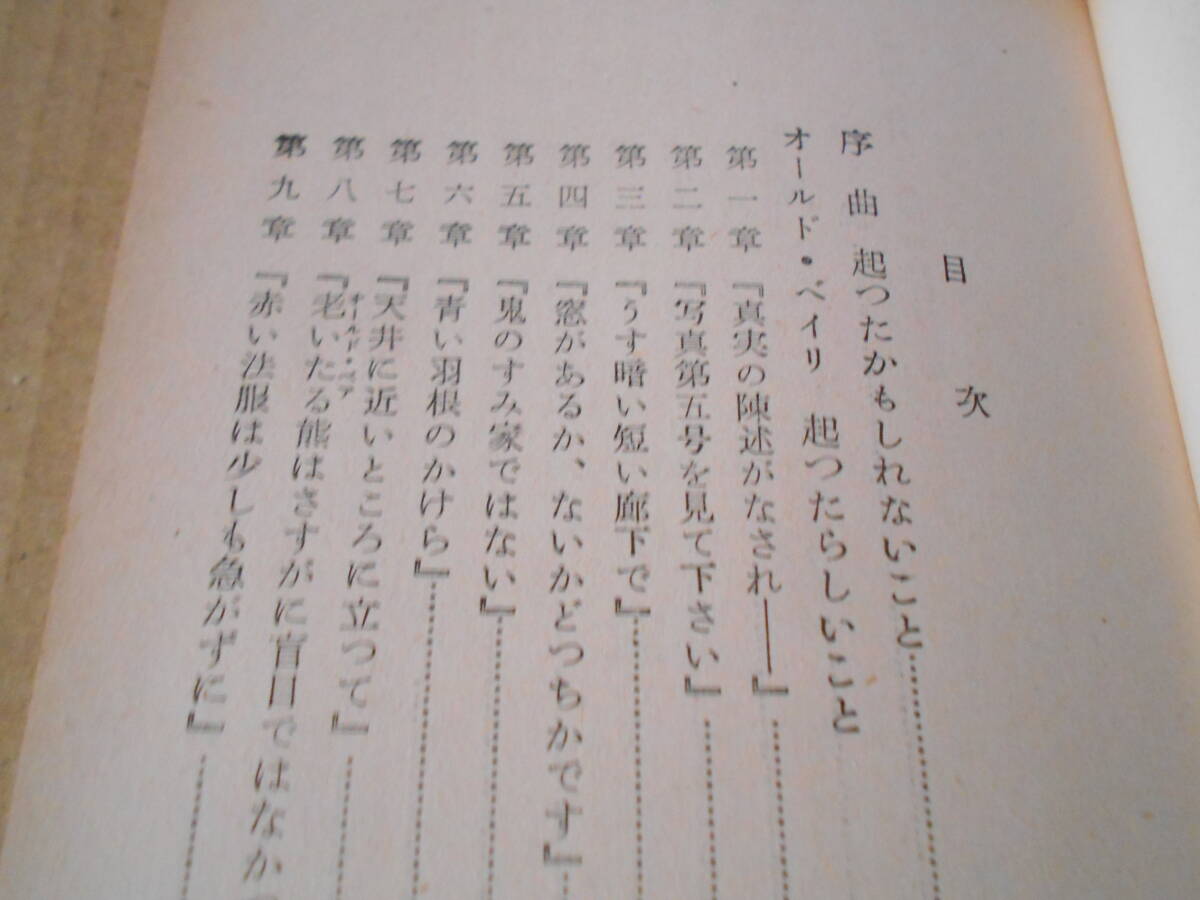 目次
序曲 起つたかもしれないこと
オールド・ベイリ 起つたらしいこと
第一章 『真実の陳述がなされ――』
第二章 『写真第五号を見て下さい』
第三章 『うす暗い短い廊下で』
第四章 『窓があるか、ないかどつちかです』
第五章 『鬼のすみ家ではない』
第六章 『青い羽根のかけら』
第七章 『天井に近いところに立つて』
オールド・ベア
第八章 『老いたる熊はさすがに盲目ではなか
第九章 『赤い法服は少しも急がずに』